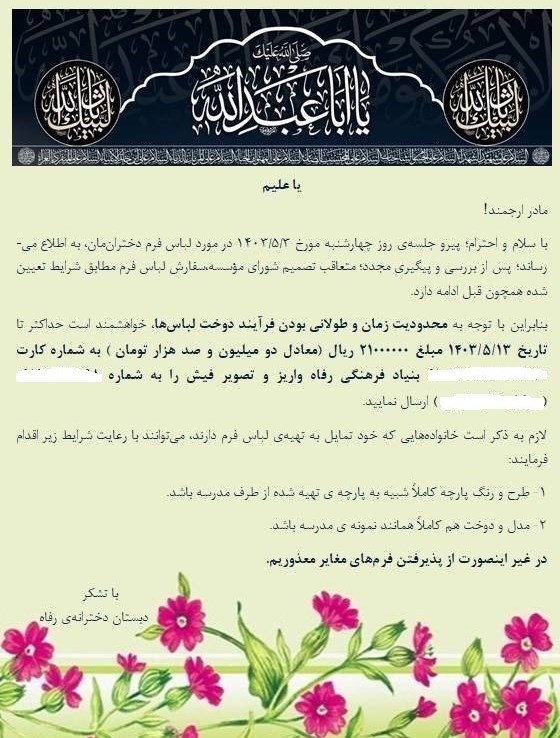 صلی الله علیک
یا اباعبدالله
لبیک یا ثارالله
لبیک یا ثارالله
یا علیم
مادر ارجمند!
با سلام و احترام؛ پیرو جلسه‌ی روز چهارشنبه مورخ ۱۴۰۳/۵/۳ در مورد لباس فرم دختران‌مان، به اطلاع می-
رساند؛ پس از بررسی و پیگیری مجدد؛ متعاقب تصمیم شورای مؤسسه،سفارش لباس فرم مطابق شرایط تعیین
شده همچون قبل ادامه دارد.
بنابراین با توجه به محدودیت زمان و طولانی بودن فرآیند دوخت لباس‌ها، خواهشمند است حداکثر تا
تاریخ ۱۴۰۳/۵/۱۳ مبلغ ۲۱۰۰۰۰۰۰ ریال (معادل دو میلیون و صد هزار تومان ) به شماره کارت
بنیاد فرهنگی رفاه واریز و تصویر فیش را به شماره
( ) ارسال نمایید.
لازم به ذکر است خانواده‌هایی که خود تمایل به تهیه‌ی لباس فرم دارند، می‌توانند با رعایت شرایط زیر اقدام
فرمایند:
۱- طرح و رنگ پارچه کاملاً شبیه به پارچه ی تهیه شده از طرف مدرسه باشد.
۲- مدل و دوخت هم کاملاً همانند نمونه ی مدرسه باشد.
در غیر اینصورت از پذیرفتن فرم‌های مغایر معذوریم.
با تشکر
دبستان دخترانه‌ی رفاه